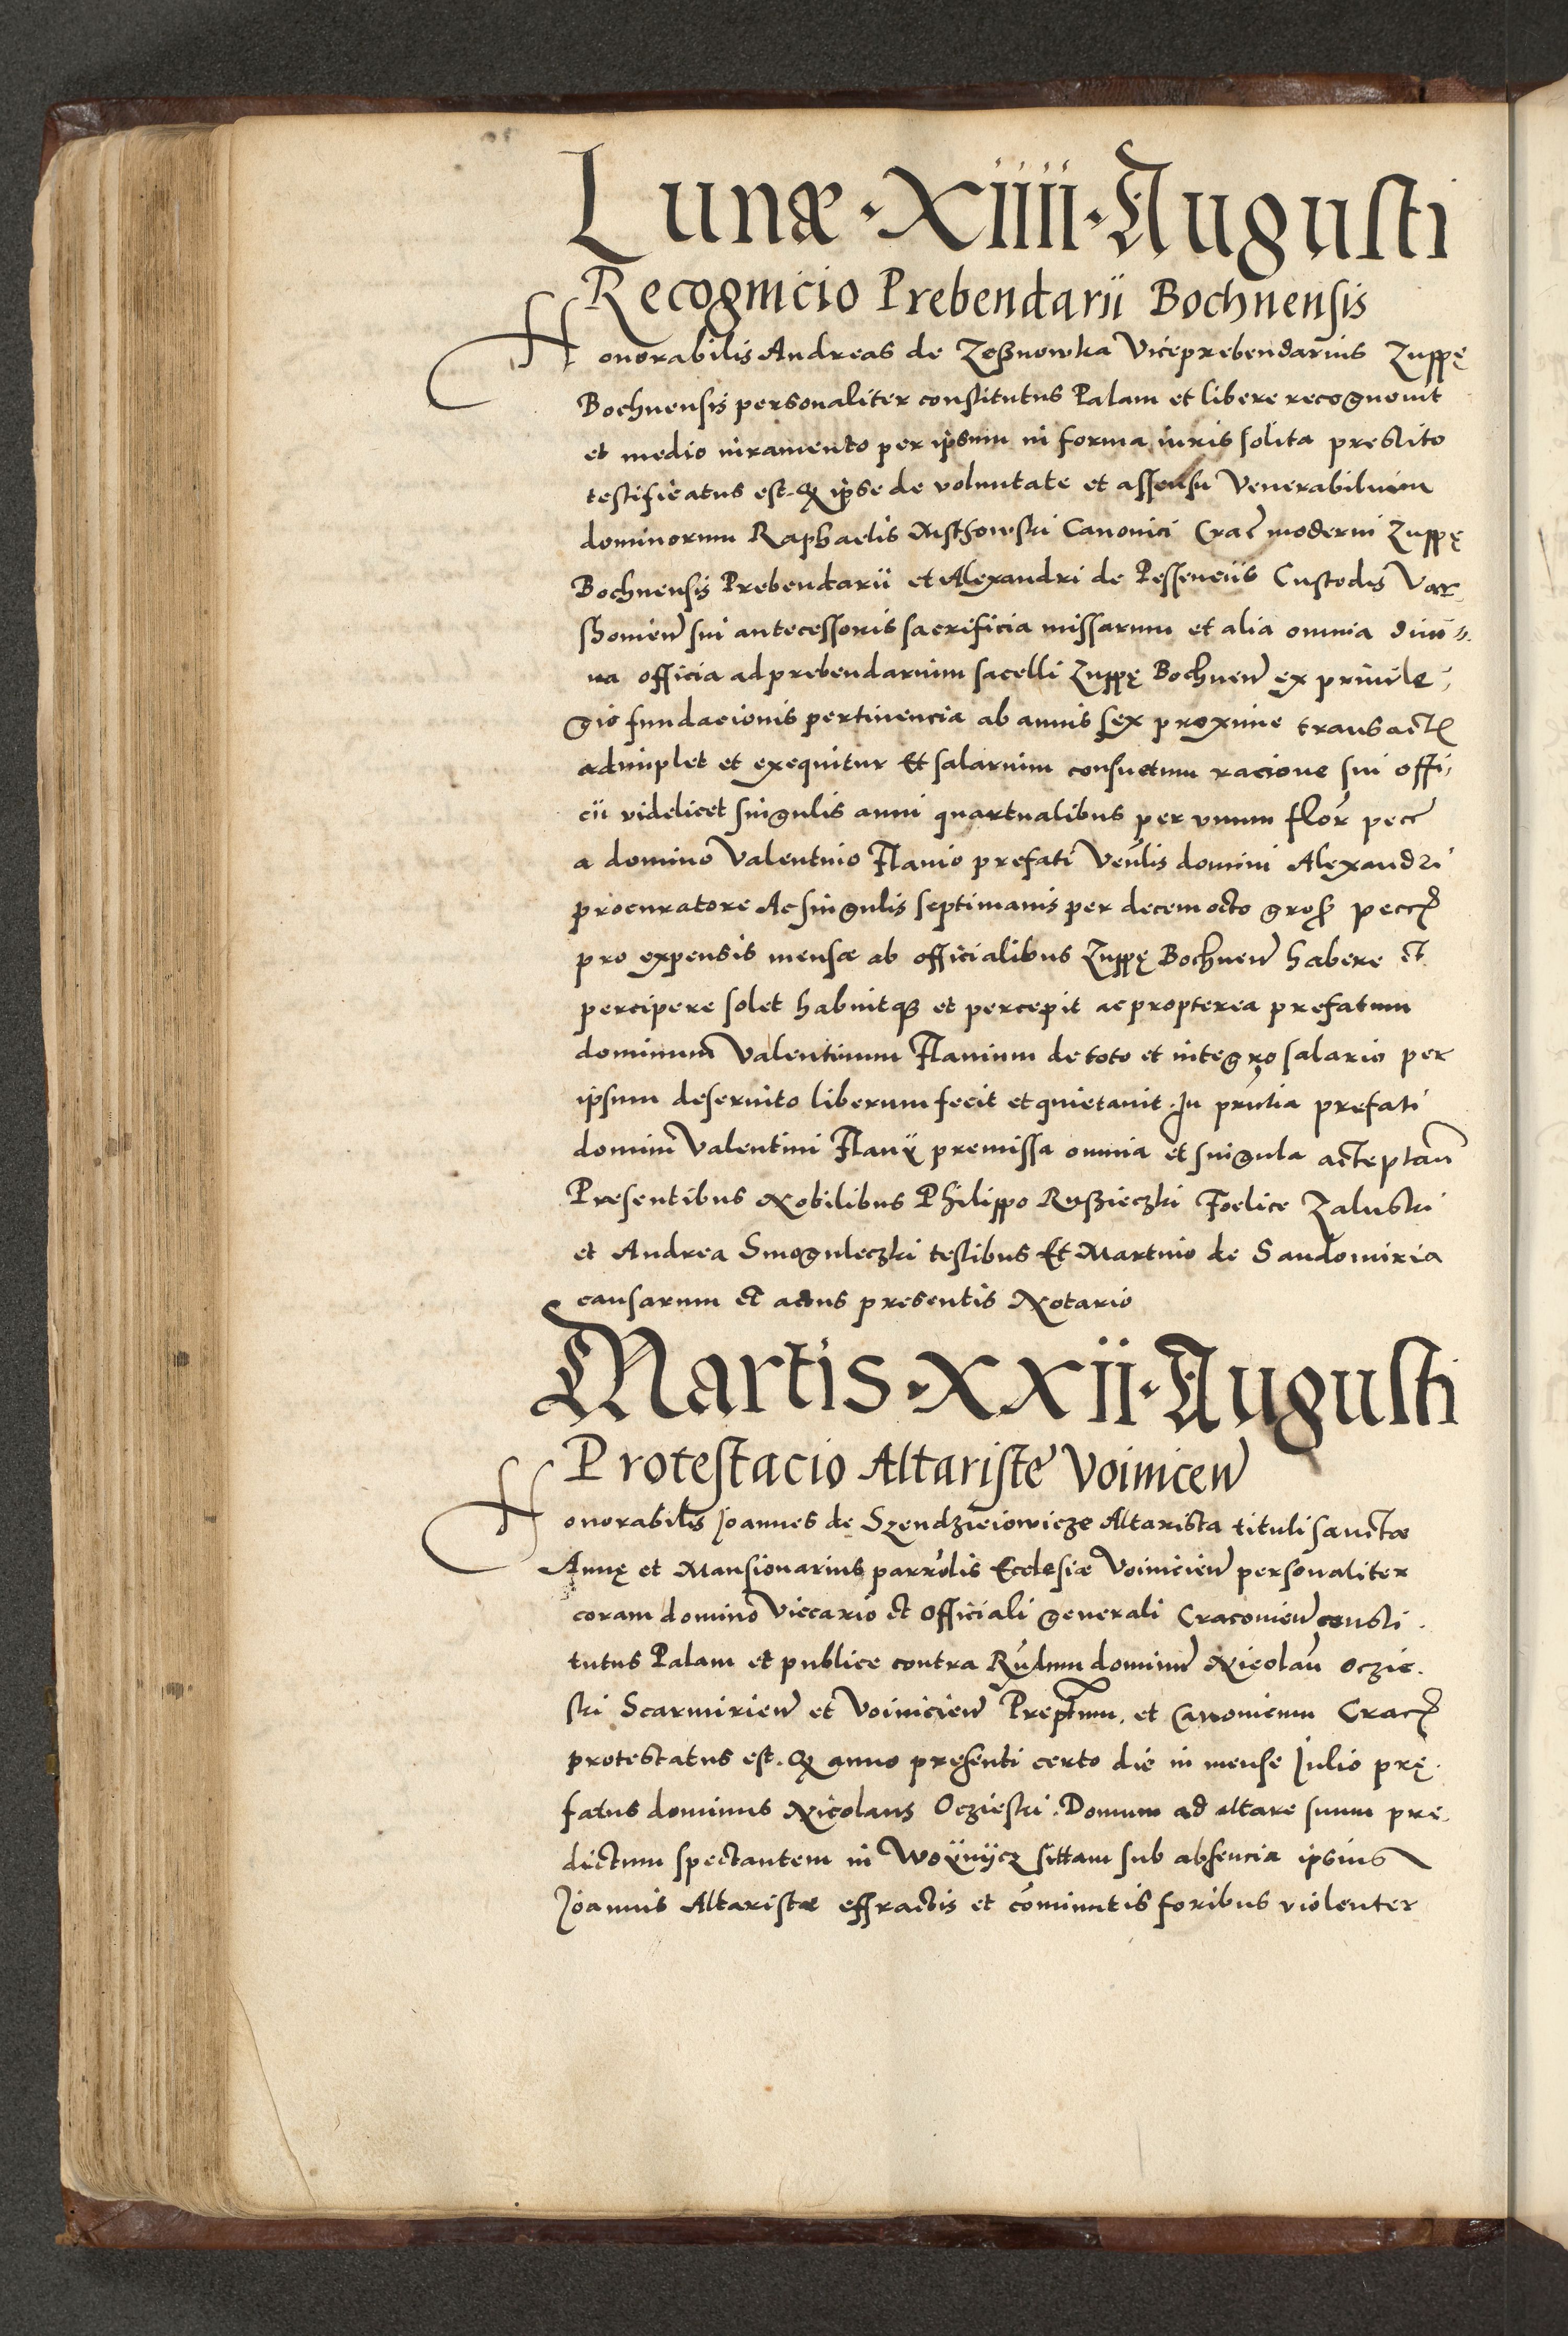 Lunæ · XIIII · Augusti
Recognicio Prebendarii Bochnensis
Honorabilis Andreas de Zeßnowka Viceprebendarius Zuppę
Bochnensis personaliter constitutus Palam et libere recognouit
et medio iuramento per ipsum in forma iuris solita prestito
testificatus est. Qꝫ ipse de voluntate et assensu Venerabilium
dominorum Raphaelis Canonici Crac̃ moderni Zuppę
Bochnensis Prebendarii et Alexandri de Pessenciis Custodis Var-
shouien̄ sui antecessoris sacrificia missarum et alia omnia diui-
na officia ad prebendarium sacelli Zuppę Bochnen̄ ex priuile-
gio fundacionis pertinencia ab annis sex proxime transactꝭ
adimplet et exequitur Et salarium consuetum racione sui offi-
cii videlicet singulis anni quartualibus per vnum florꝭ pecc̃
a domino Valentino Flauio prefati Ven̄lis domini Alexandri
procuratore Ac singulis septimanis per decem octo grosꝭ peccꝭ
pro expensis mensæ ab officialibus Zuppę Bochnen̄ habere et
percipere solet habuitqꝫ et percepit ac propterea prefatum
dominum Valentinum Flauium de toto et integro salario per
ipsum deseruito liberum fecit et quietauit. In pn̄tia prefati
domini Valentini Flauij premissa omnia et singula acceptan̄
Præsentibus Nobilibus Philippo Rußieczki Foelice Zaluski
et Andrea Smoguleczki testibus Et Martino de Sandomiria
causarum et actus presentis Notario
Martis · XXII · Augusti
Protestacio Altariste Voinicen̄
Honorabilis Joannes de Szendzieiowicze Altarista tituli sanctæ
Annę et Mansionarius parrōlis Ecclesiæ Voinicien̄ personaliter
coram domino Viccario et Officiali generali Cracouien̄ consti-
tutus Palam et publice contra Rn̄dum dominū Nicolaū Oczie-
ski Scarmirien̄ et Voinicien̄ Preptum. et Canonicum Cracꝭ
protestatus est. Qꝫ anno presenti certo die in mense Julio prę-
fatus dominus Nicolaus Oczieski. Domum ad altare suum pre-
dictum spectantem in Woÿnÿcz sittam sub absencia ipsius
Joannis Altaristæ effractis et cōminutis foribus violenter